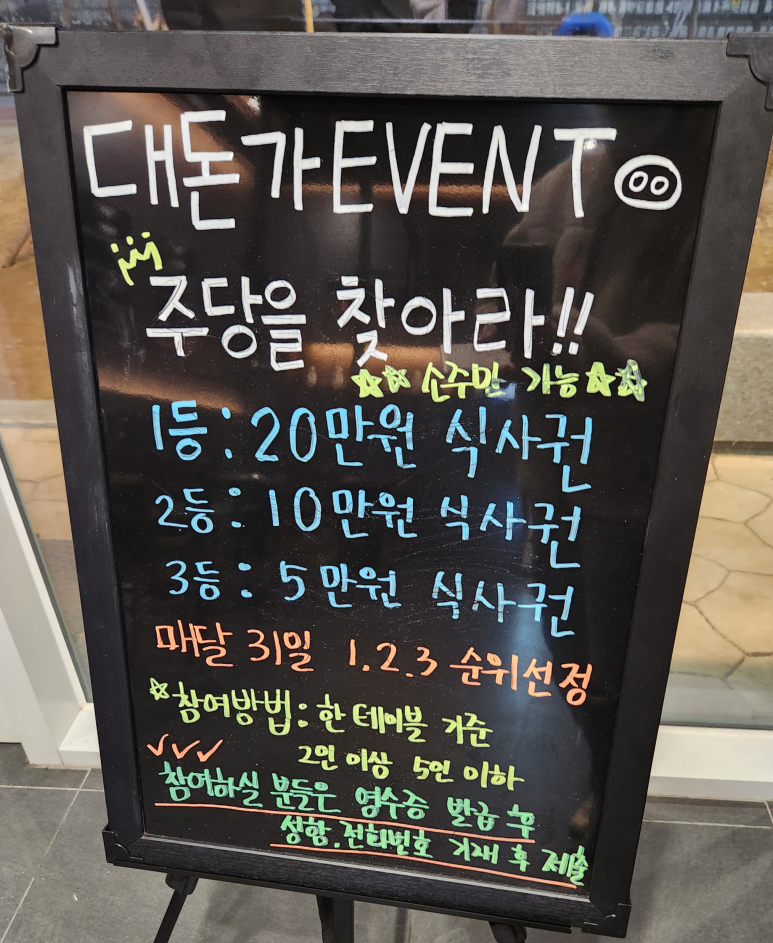 대돈가EVENT
주당을 찾아라!!
소주만 가능
1등: 20만원 식사권
2등: 10만원 식사권
3등: 5만원 식사권
매달 31일 1.2.3 순위선정
참여방법: 한 테이블 기준
2인 이상 5인 이하
참여하실 분들은 영수증 발급 후
성함.전화번호 기재 후 제출